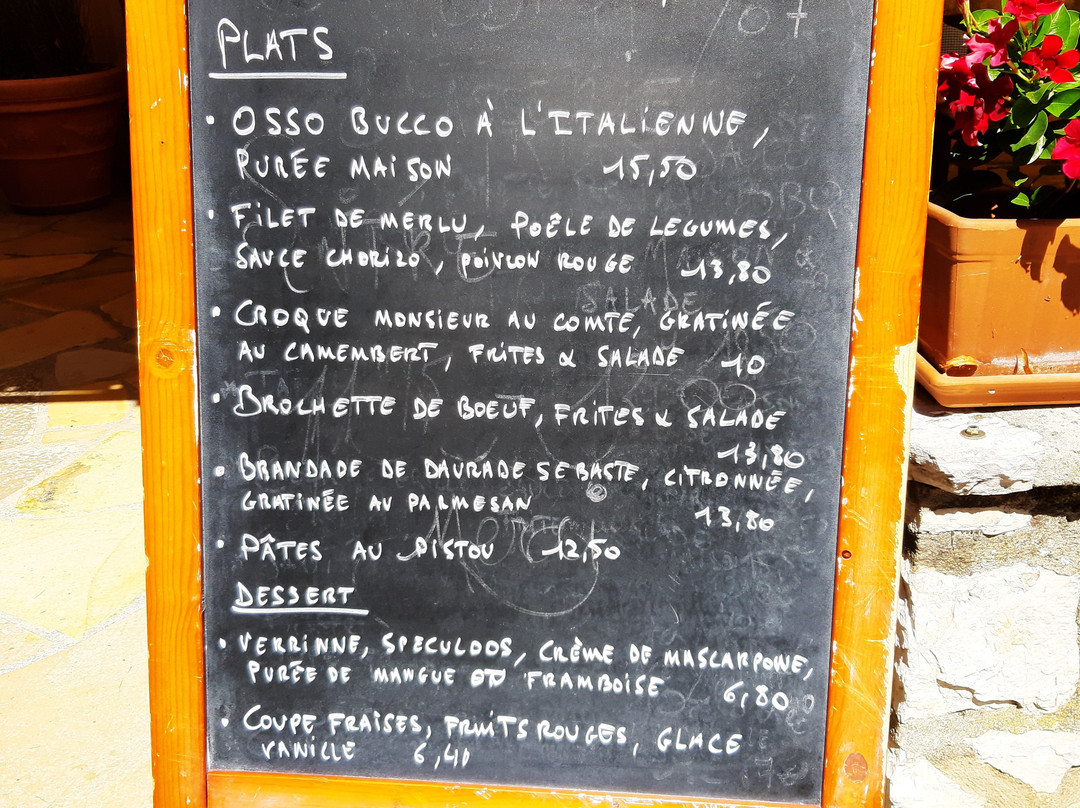 PLATS
• OSSO BUCCO À L'ITALIENNE,
PURÉE MAISON 15,50
• FILET DE MERLU, POËLE DE LEGUMES,
SAUCE CHORIZO, POIVRON ROUGE 13,80
• CROQUE MONSIEUR AU COMTE, GRATINÉE
AU CAMEMBERT, FRITES & SALADE 10
• BROCHETTE DE BOEUF, FRITES & SALADE
13,80
• BRANDADE DE DAURADE SEBASTE, CITRONNÉE,
GRATINÉE AU PARMESAN 13,80
• PÂTES AU PISTOU 12,50
DESSERT
• VERRINNE, SPECULOOS, CRÈME DE MASCARPONE,
PURÉE DE MANGUE OU FRAMBOISE 6,80
• COUPE FRAISES, FRUITS ROUGES, GLACE
VANILLE 6,40